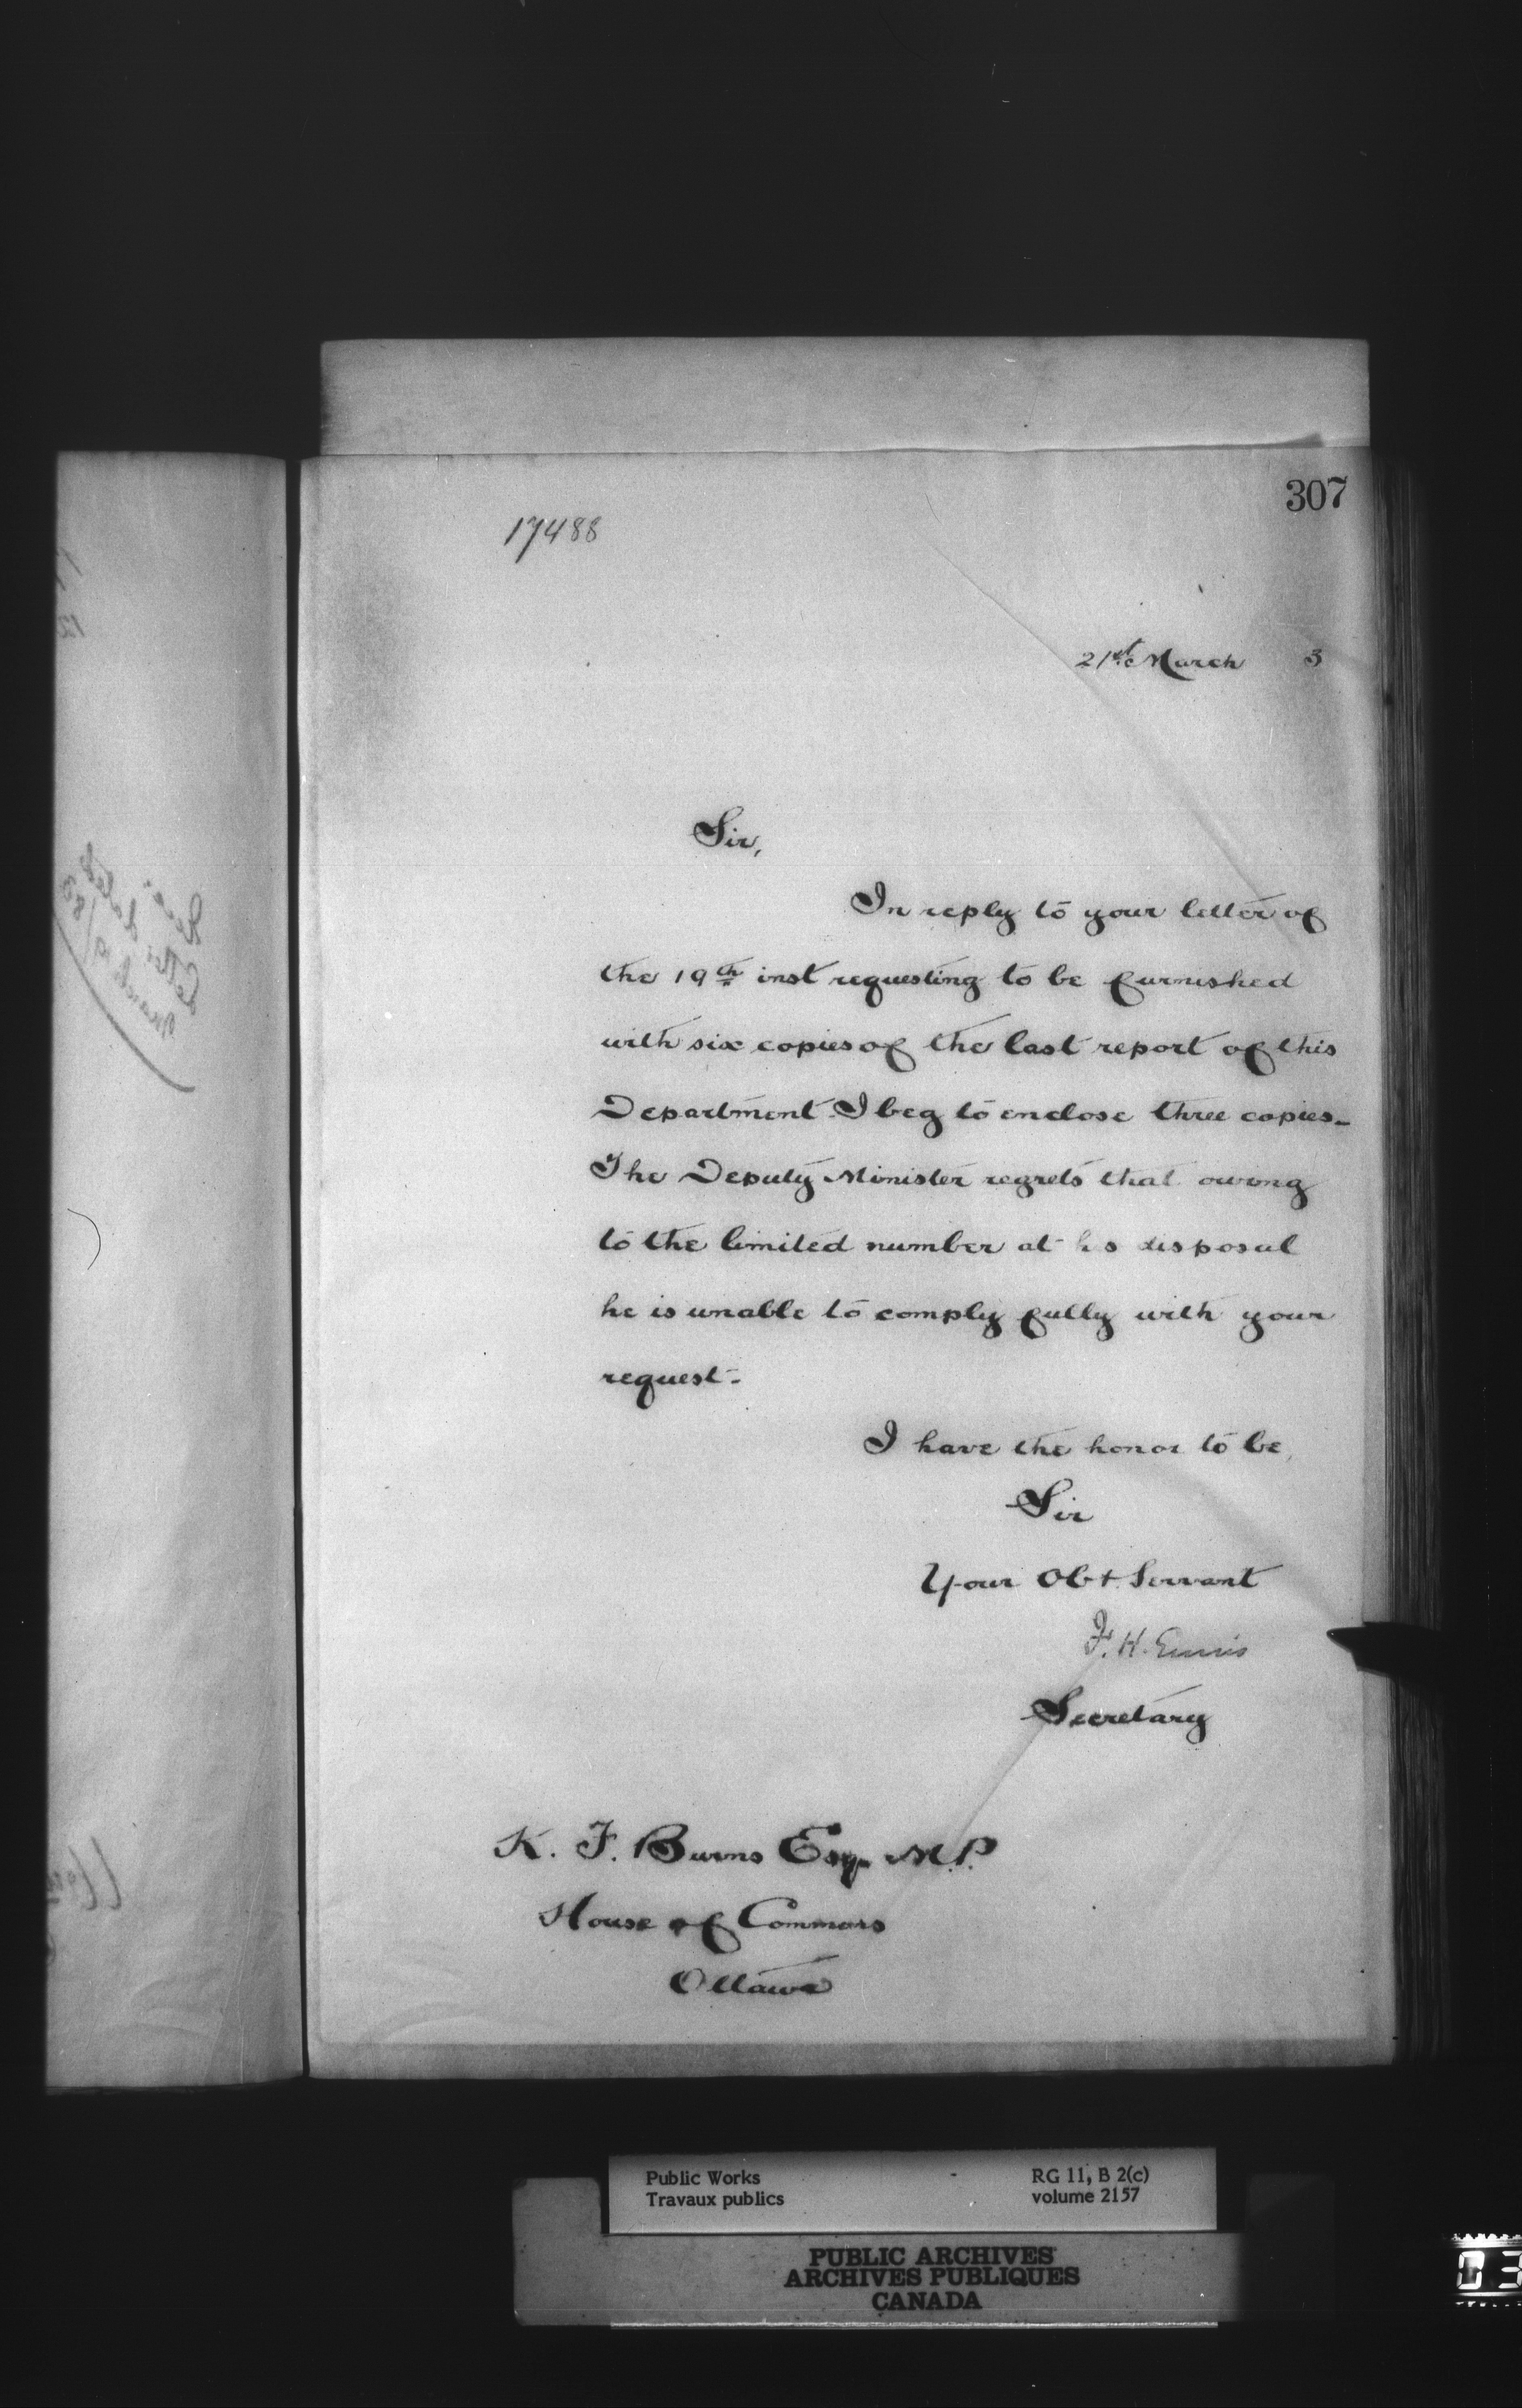 307
17488
21st March 3
Sir,
In reply to your letter of
the 19th inst requesting to be furnished
with six copies of the last report of this
Department I beg to enclose three copies-
The Deputy Minister regrets that owing
to the limited number at his disposal
he is unable to comply fully with your
request-
I have the honor to be,
Sir
Your Obt Servant
F. H. Ennis
Secretary
K. F. Burns Esq M.P.
House of Commons
Ottawa
Public Works
Travaux publics
RG 11, B 2(c)
volume 2157
PUBLIC ARCHIVES
ARCHIVES PUBLIQUES
CANADA
03